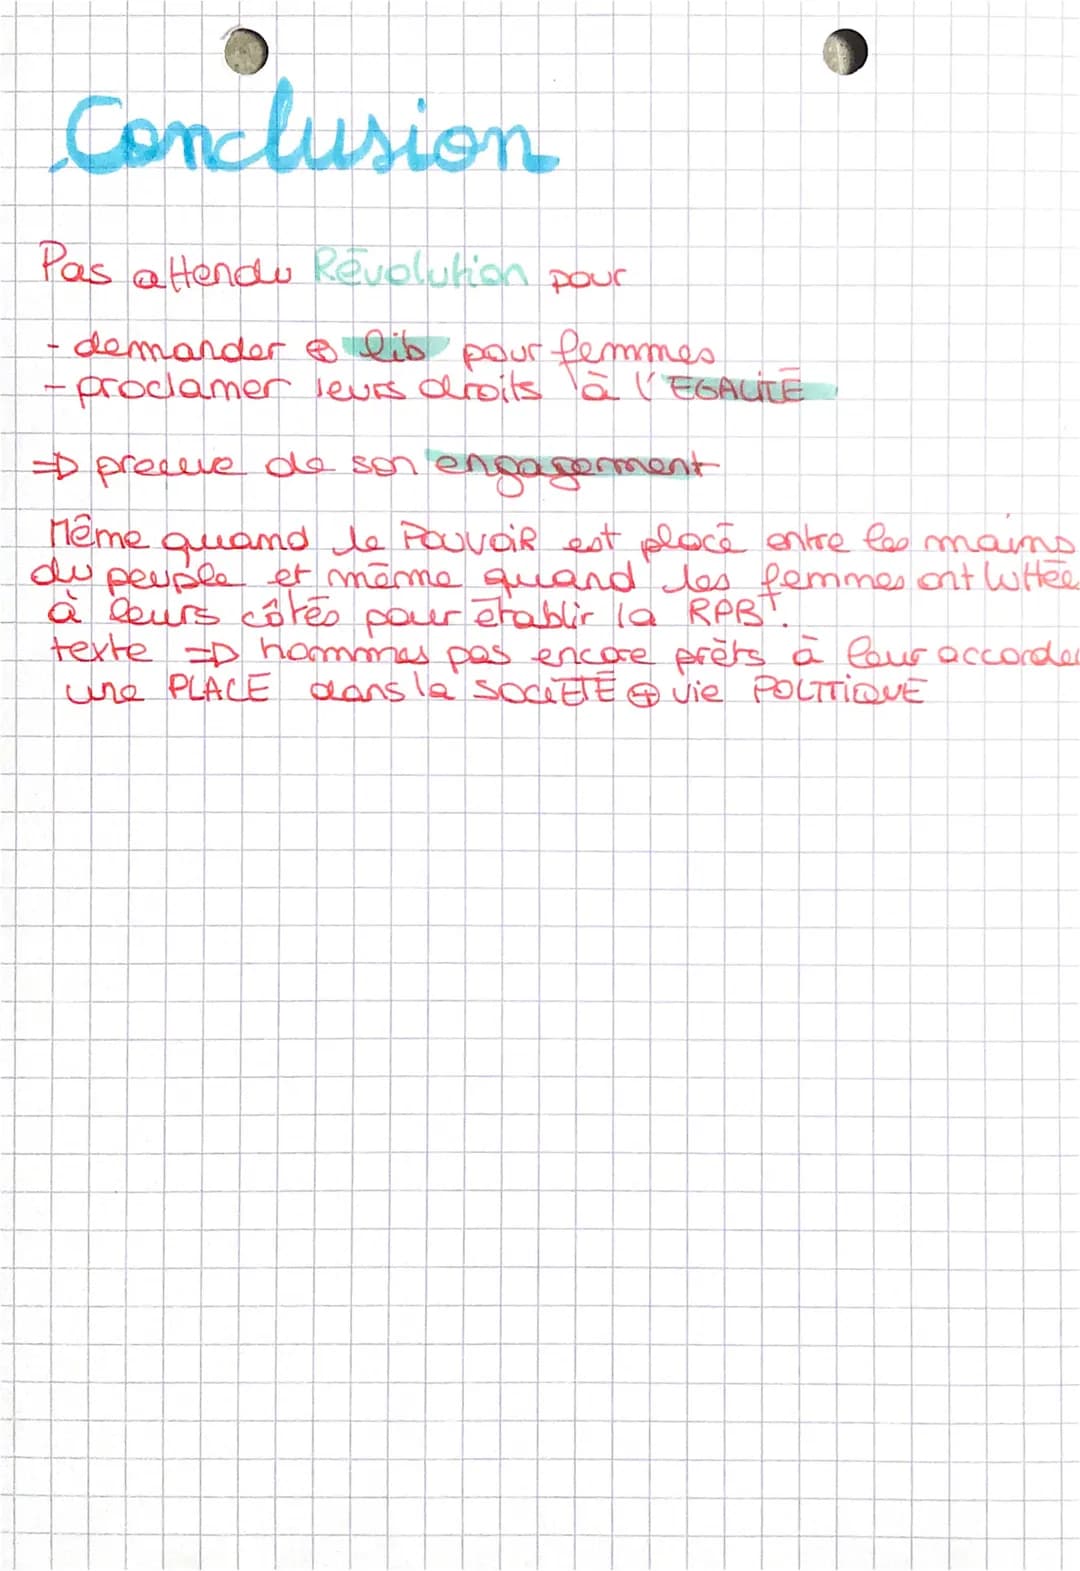 Conclusion
Pas attendu Révolution pour
- demander ⊕ lib pour femmes
- proclamer leurs droits à l'EGALITÉ
=> preuve de son engagement
Même quand le POUVOIR est placé entre les mains
du peuple et même quand les femmes ont luttée
à leurs côtés pour établir la RPB.
texte => hommes pas encore prêts à leur accorder
une PLACE dans la SOCIÉTÉ ⊕ vie POLITIQUE